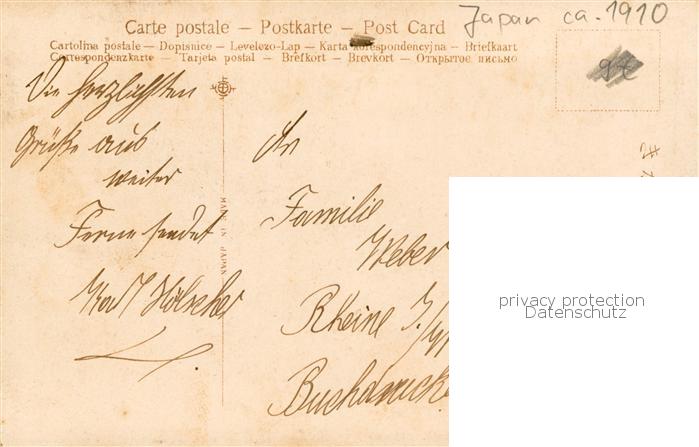 Japan ca. 1910
Carte postale — Postkarte — Post Card
Cartolina postale — Dopisnice — Levelezo-Lap — Karta korespondencyjna — Briefkaart
Correspondenzkarte — Tarjeta postal — Brefkort — Brevkort — Открытое письмо
Die herzlichsten
Grüße aus
weiter
Ferne sendet
Karl Hölscher
MADE IN JAPAN
An
Familie
Weber
Rheine
privacy protection
Datenschutz